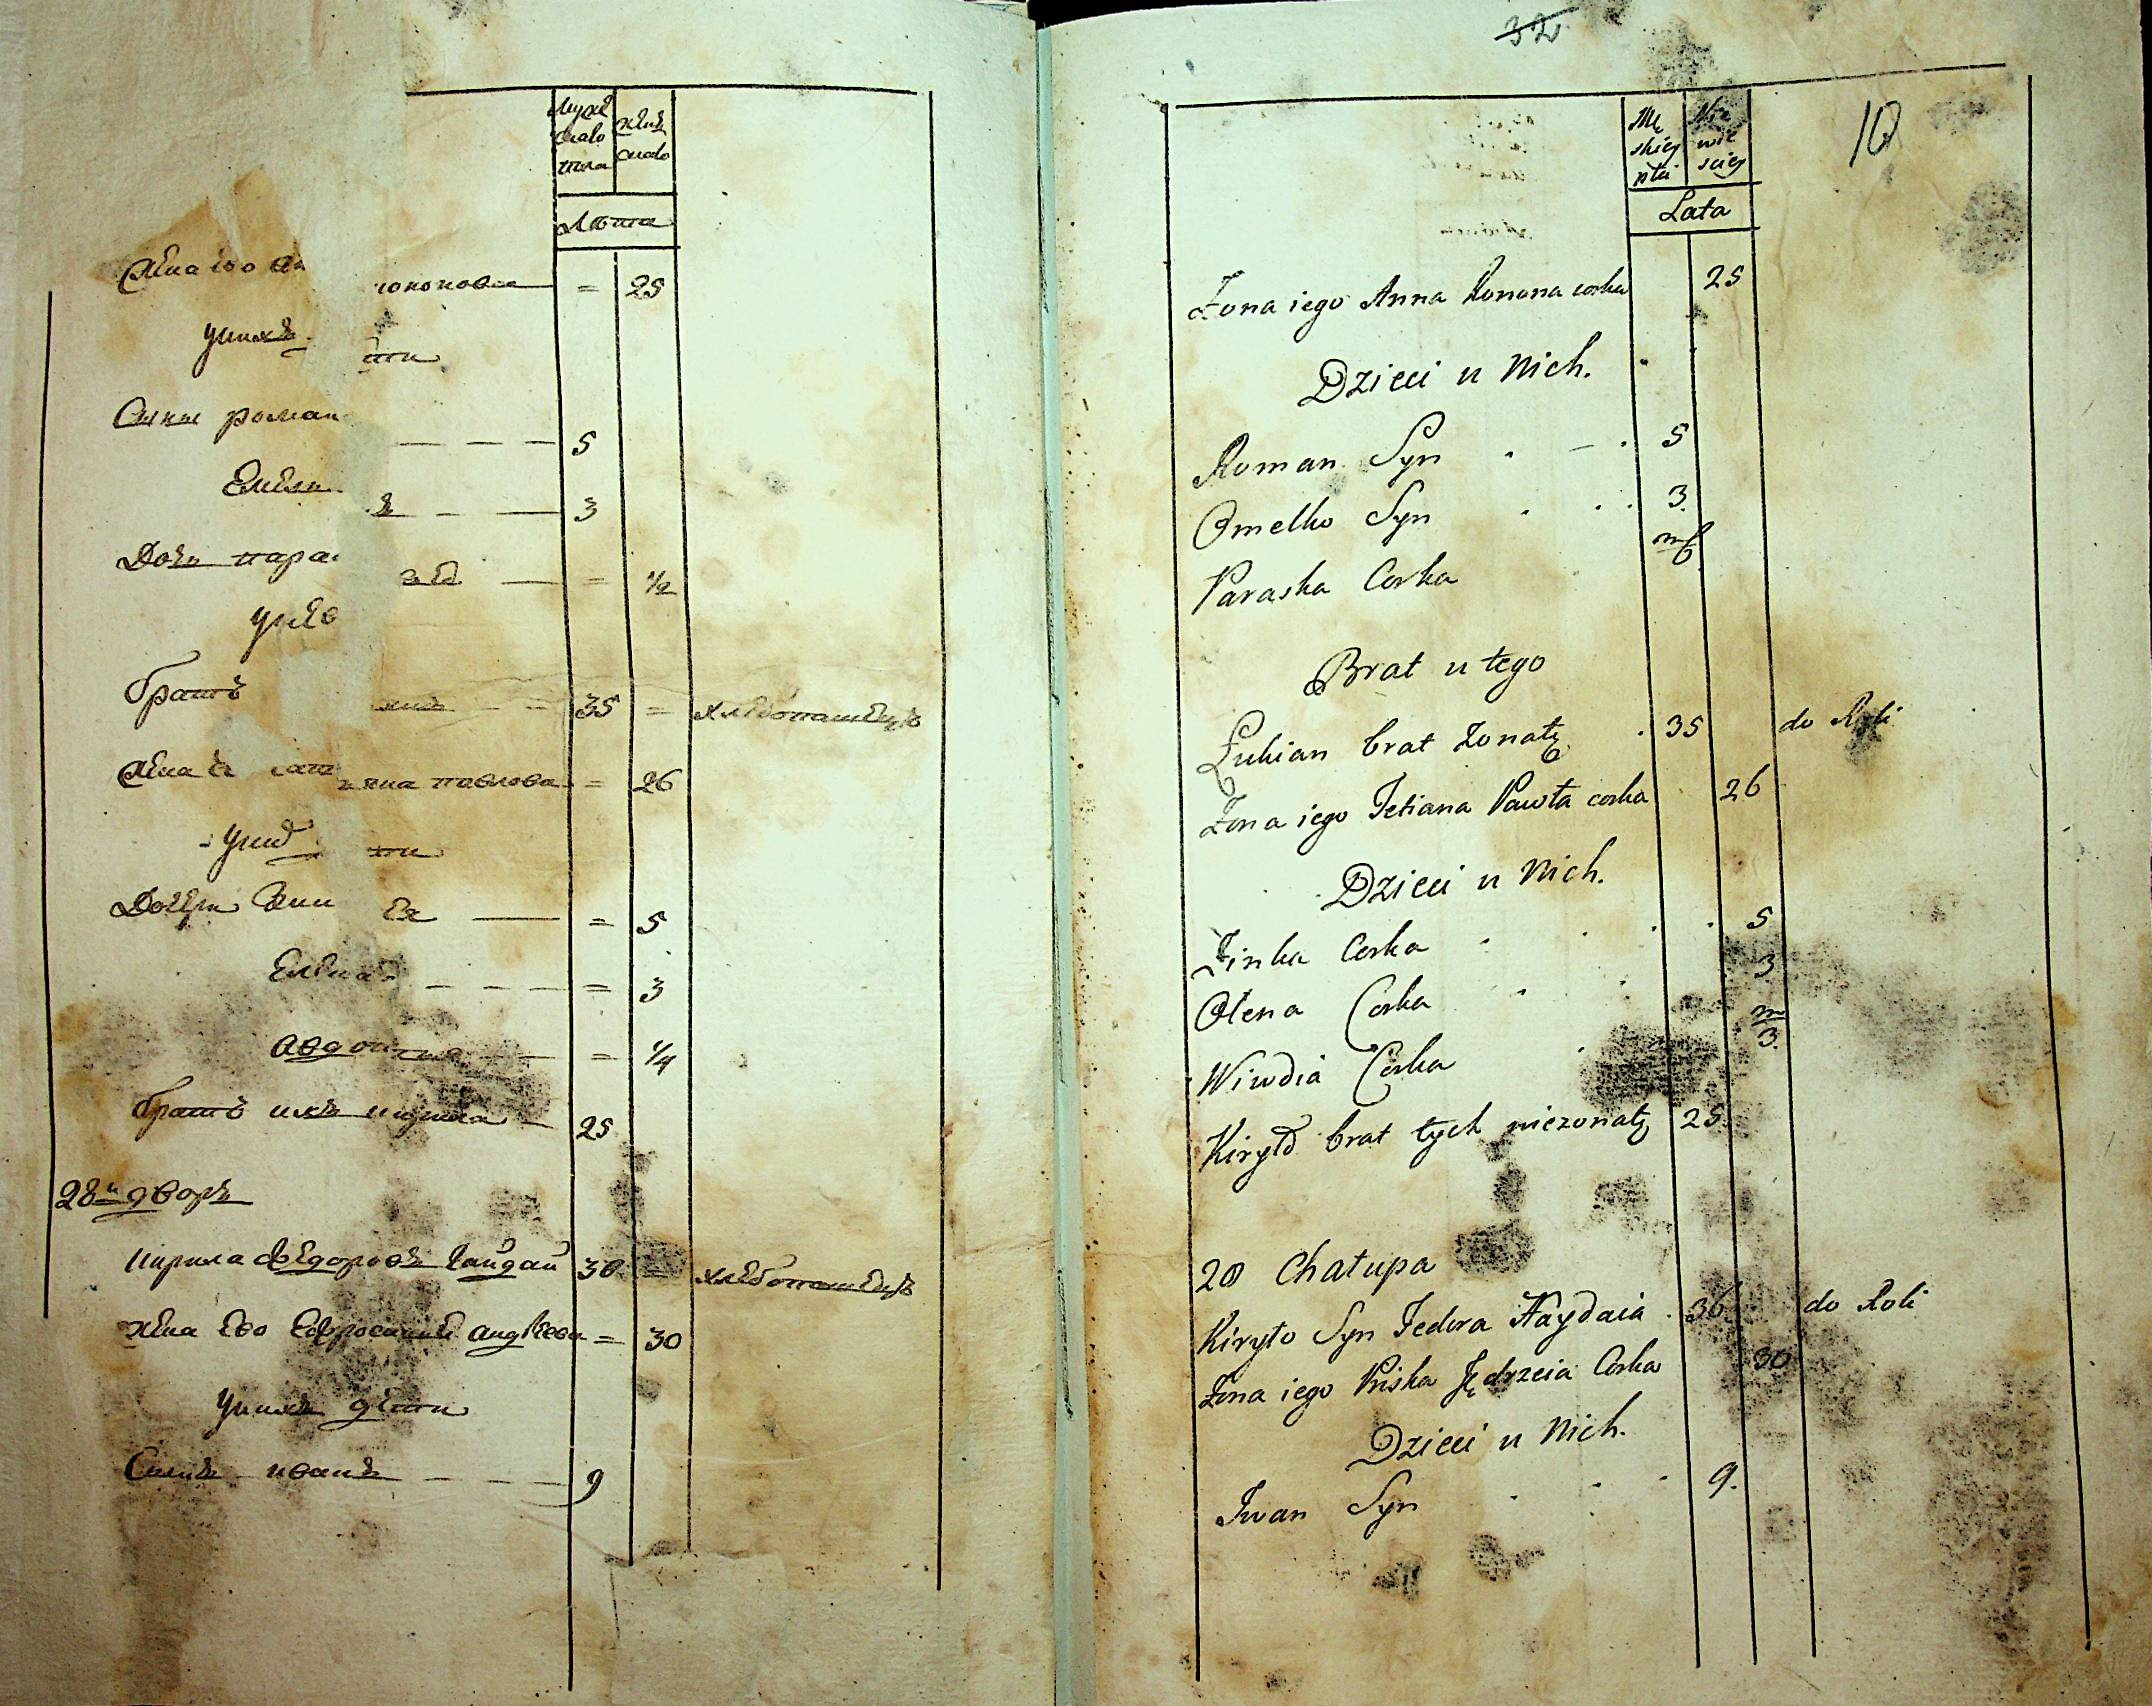 Муже
ска
пола
жен
ска
Лета
Жена его ан кононова = 25
у них ети
Сыны роман — — — 5
Емел ъ — — 3
Дочь пара ва — = 1/2
у нево
братъ янъ = 35 = хлебопашецъ
Жена ево тат яна павлова = 26
у них ети
Дочери Зин ея — = 5
Елена — — — = 3
Авдотия — = 1/4
братъ ихъ кирила — 25
28й дворъ
кирила Федоровъ Гайдай 36 = хлебопашецъ
жена Ево Ефросиния андреева = 30
у нихъ дети
Сынъ иванъ — — — 9
32
10
Mę
skiey
płci
Nie
wie
sciey
Lata
Zona iego Anna Konona corka 25
Dzieci u Nich.
Roman Syn . — . 5
Omelko Syn . . . 3.
Paraska Corka m/6
Brat u tego
Łukian brat zonaty . 35 do Roli
Zona iego Tetiana Pawła corka 26
Dzieci u Nich.
Zinka Corka . . . . 5
Olena Corka . . . 3
Wiwdia Corka . m/3.
Kiryło brat tych niezonaty 25.
28 Chałupa
Kiryło Syn Fedora Haydaia . 36 do Roli
Zona iego Priska Jędrzeia Corka 30
Dzieci u Nich.
Iwan Syn . . . 9.